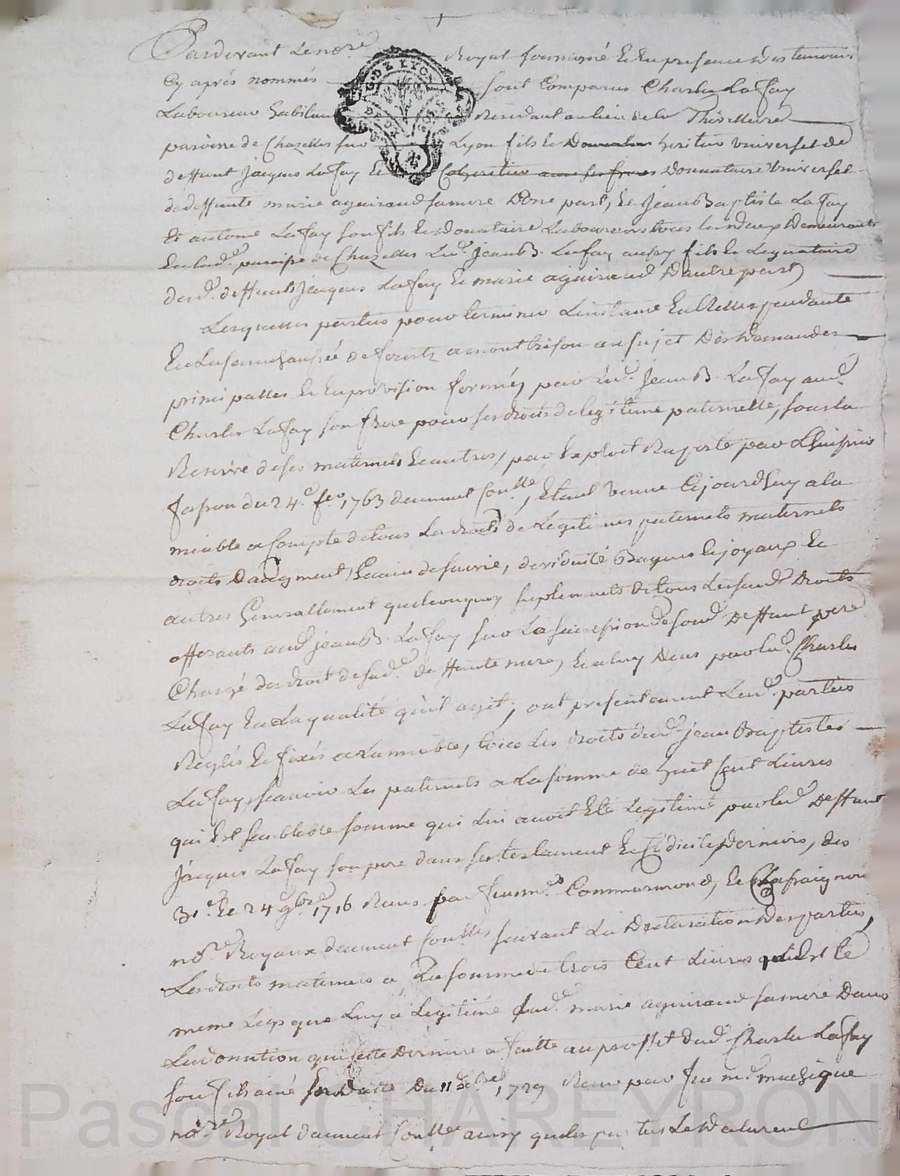 Pardevant Le no.re Royal soussigné Et En presence des temoins
Cy après nommés sont Comparus Charles La fay
G. DE LYON
DEUX
Laboureur habitant Residant au lieu de la Thivilliere
paroisse de Chazelles sur Lyon fils et Donnataire heritier Universel de
deffunt Jacques La fay Et Donnataire Universel
de deffunte marie aguiraud sa mere D'une part, Et Jean Baptiste La fay
Et antoine La fay son fils Et donataire Laboureurs tous les deux Demeurants
En lad. paroisse de Chazelles Led. Jean B. La fay aussy fils Et Legataire
dud. deffunt Jacques La fay Et marie aguiraud D'autre part,
Lesquelles parties pour terminer L'instance Entr'elles pendante
En La senechaussée de forets a montbrison au sujet Des Demandes
principalles Et En provision formées par Led. Jean B. La fay aud.
Charles La fay son frere pour ses droits de legitime paternelle, sous la
Reserve de ses maternels Et autres, par Exploit Raporté par L'huissier
du 24.e 1763 deument con.llé, Etant venue Cejourd'huy a la
miable a Compte de tous Les droits de Legitimes paternels maternels
droits D'augment, de survie, de viduité Bagues Et joyaux Et
autres Generallement quelconques suplements de tous Lesd. Droits
afferants aud. jean B. La fay sur La succession de sond. Deffunt pere
Chargé des droits de lad. deffunte mere, Et a luy Deus par led. Charles
La fay En La qualité qu'il agit, ont presentement Lesd. parties
Reglés Et fixés a L'amiable, tous Les droits dud. jean Baptiste
La fay, sçavoir Les paternels a La somme de huit Cent Livres
qui Est semblable somme qui Lui avoit Eté Legitimé par led. Deffunt
Jacques La fay son pere dans ses testament Et Codicile Derniers, des
31.e Et 24 9bre 1716 Reçus par feu m.e Commarmond, Et Chafraignon
no.res Royaux deument con.llés suivant La Declaration Des parties,
Les droits maternels a La somme de trois Cent Livres qui Est Le
meme Legs que Luy a Legitimé lad. marie aguiraud sa mere Dans
La donnation que cette Derniere a faitte au proffit dud. Charles La fay
son fils ainé Sous Datte Du 11 1729 Reçue par feu m.e
no.re Royal deument con.llée ainsy que les parties Le Declarent
Pascal CHAREYRON